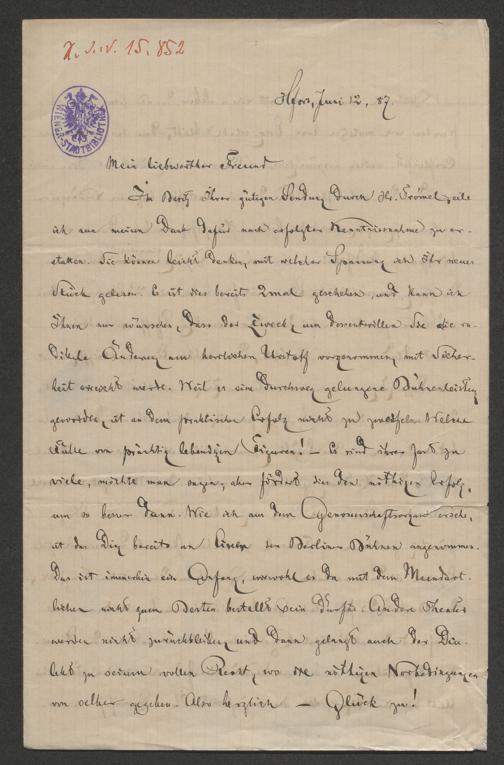 J. N. 15.852
WIENER STADTBIBLIOTHEK
Juni 12. 87
Mein liebwerther Freund
In Besitz Ihrer gütigen Sendung durch Hr. Frömel, eile
ich nun meinen Dank dafür nach erfolgter Kenntnissnahme zu er-
statten. Sie können leicht denken, mit welcher Spannung ich Ihr neues
Stück gelesen. Es ist dies bereits 2mal geschehen, und kann ich
Ihnen nur wünschen, dass der Zweck, um dessentwillen Sie die ra-
dikale Änderung am herrlichen Urstoff vorgenommen, mit Sicher-
heit erreicht werde. Weil es eine durchweg gelungene Bühnenleistung
geworden, ist an dem praktischen Erfolg nicht zu zweifeln. Welche
Fülle von prächtig lebendigen Figuren! – Es sind ihrer fast zu
viele, möchte man sagen, aber fördert dies den nöthigen Erfolg,
um so besser dann. Wie ich aus dem Genossenschaftsorgan ersehe,
ist das Ding bereits an einer den Berliner Bühnen angenommen.
Das ist immerhin ein Anfang, wiewohl es da mit dem Mundart-
lichen nicht zum Besten bestellt sein dürfte. Andere Theater
werden nicht zurückbleiben, und dann gelangt auch der Dia-
lekt zu seinem vollen Recht, wo die nöthigen Vorbedingungen
von selber gegeben. Also herzlich – Glück zu!